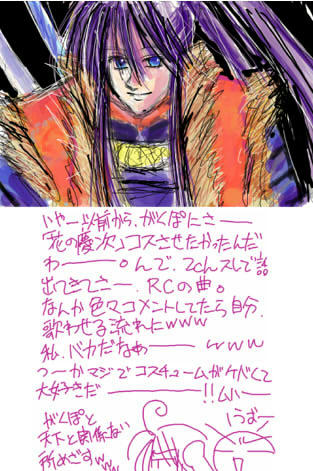 いやー以前から、がくぽにさーー
「花の慶次」コスさせたかったんだ
わーー。んで、2chスレで
出てきてさー、RCの曲。
なんか色々コメントしてたら自分、
歌わせる流れにwww
私、バカだなぁーー www
つーかマジでコスチュームがケバくて
大好きだーーー!!ムハー
がくぽと
天下と関係ない
所めざすwww